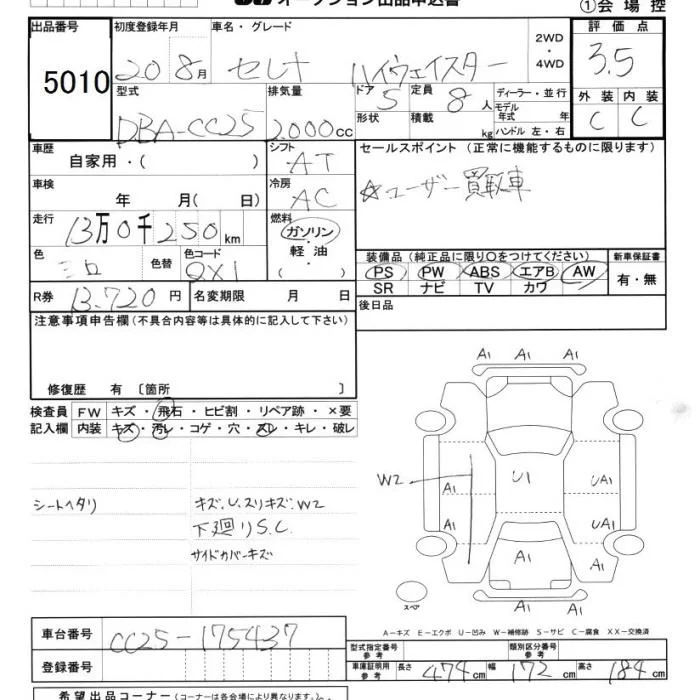 オークション出品申込書
①会場控
出品番号 5010
初度登録年月 20 8月
車名・グレード セレナ ハイウェイスター
2WD・4WD
評価点 3.5
外装 内装
C C
型式 DBA-CC25
排気量 2,000cc
ドア 5
形状
定員 8人
積載 kg
ディーラー・並行
モデル年式 年
ハンドル 左・右
車歴 自家用・( )
シフト AT
セールスポイント (正常に機能するものに限ります)
☆ユーザー買取車
車検 年 月( 日)
冷房 AC
走行 13万0千250km
燃料 ガソリン・軽油・( )
色 シロ
色替
色コード QX1
装備品 (純正品に限り○をつけてください)
PS PW ABS エアB AW
SR ナビ TV カワ
新車保証書
有・無
R券 13.720円
名変期限 月 日
後日品
注意事項申告欄 (不具合内容等は具体的に記入して下さい)
修復歴 有 〔箇所 〕
検査員記入欄
FW キズ・飛石・ヒビ割・リペア跡・×要
内装 キズ・汚レ・コゲ・穴・スレ・キレ・破レ
シートヘタリ
キズ、U、スリキズ、W2
下廻りS.C.
サイドカバーキズ
A1 A1 A1
A1 A1
W2
U1
A1 UA1
A1 UA1
A1
A1 A1
A1
スペア
A-キズ E-エクボ U-凹み W-補修跡 S-サビ C-腐食 XX-交換済
車台番号 CC25-175437
登録番号
型式指定番号 参考
類別区分番号 参考
車庫証明用 参考 長さ 474cm 幅 172cm 高さ 184cm
希望出品コーナー (コーナーは各会場により異なります。)